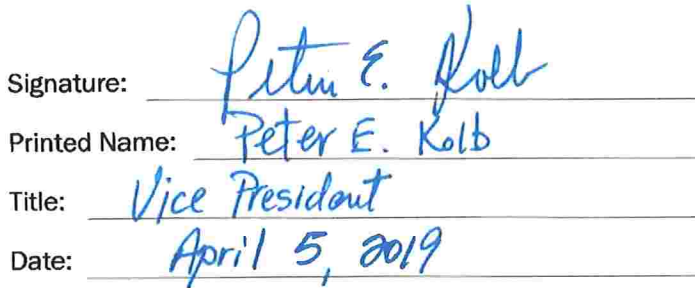 Signature: Peter E. Kolb
Printed Name: Peter E. Kolb
Title: Vice President
Date: April 5, 2019